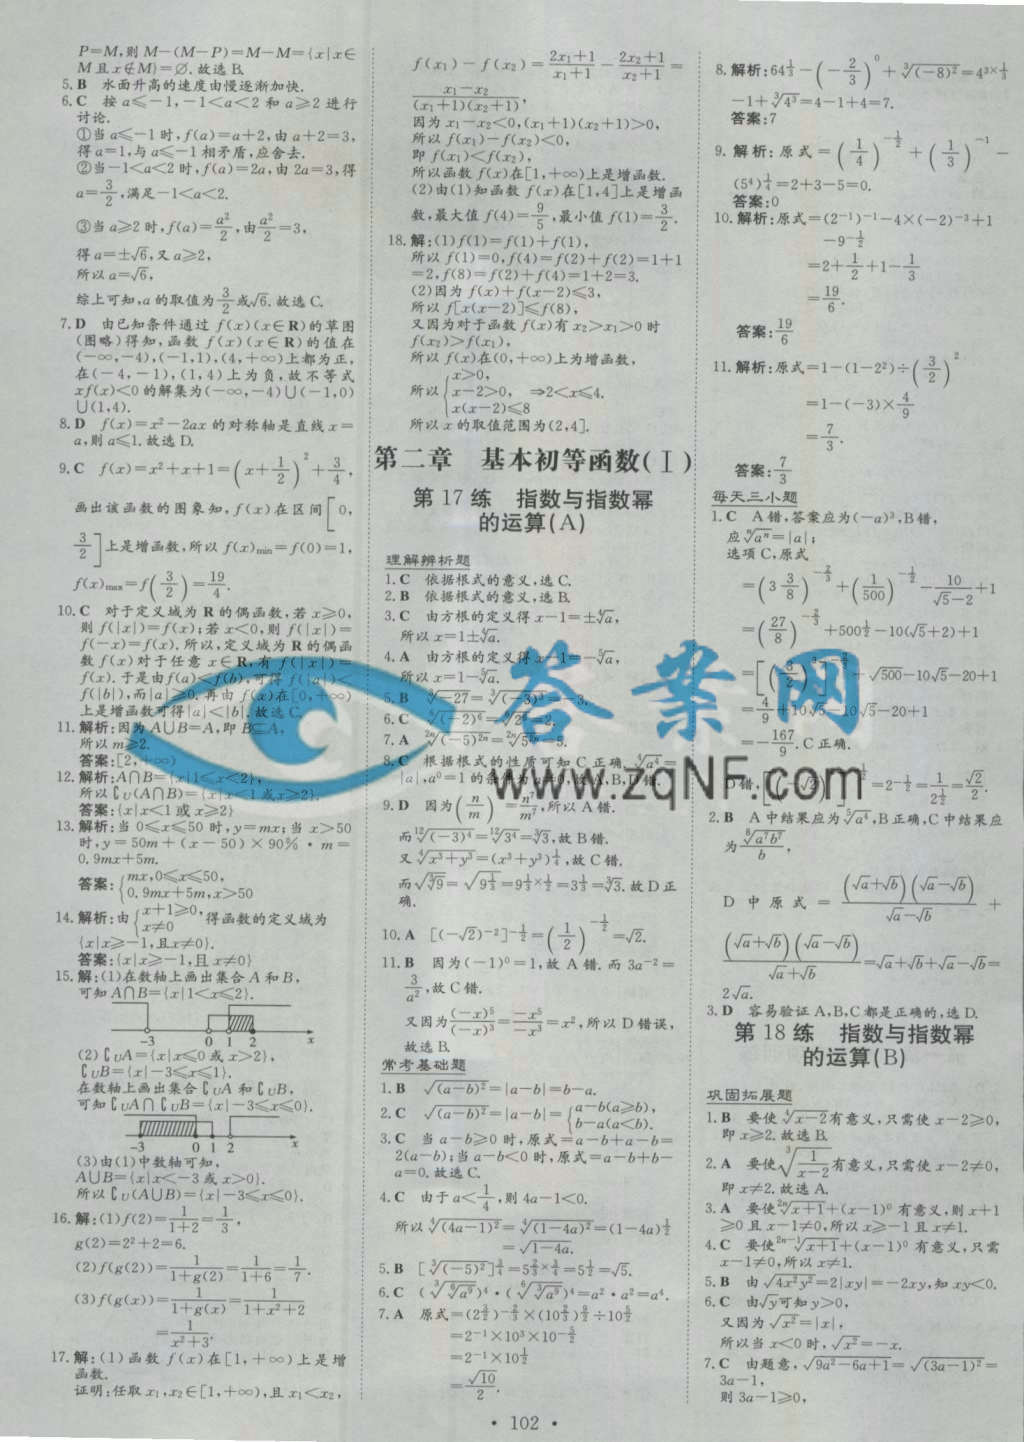 P=M,则 M-(M-P)=M-M={x|x∈
M且x∉M}=∅.故选B.
5. B 水面升高的速度由慢逐渐加快.
6. C 按 a⩽-1,-1<a<2 和 a⩾2 进行
讨论.
①当 a⩽-1 时,f(a)=a+2,由 a+2=3,
得 a=1,与 a⩽-1 相矛盾,应舍去.
②当-1<a<2 时,f(a)=2a,由 2a=3,得
a=3/2,满足-1<a<2.
③当 a⩾2 时,f(a)=a²/2,由a²/2=3,
得 a=±√6,又 a⩾2,
所以 a=√6,
综上可知,a 的取值为3/2或√6.故选 C.
7. D 由已知条件通过 f(x)(x∈R)的草图
(图略)得知,函数 f(x)(x∈R)的值在
(-∞,-4),(-1,1),(4,+∞)上都为正,
在(-4,-1),(1,4)上为负,故不等式
xf(x)<0 的解集为(-∞,-4)∪(-1,0)
∪(1,4).
8. D f(x)=x²-2ax 的对称轴是直线 x=
a,则 a⩽1.故选 D.
9. C f(x)=x²+x+1=(x+1/2)²+3/4,
画出该函数的图象知,f(x)在区间[0,
3/2]上是增函数,所以 f(x)min=f(0)=1,
f(x)max=f(3/2)=19/4.
10. C 对于定义域为 R 的偶函数,若 x⩾0,
则 f(|x|)=f(x);若 x<0,则 f(|x|)=
f(-x)=f(x).所以,定义域为 R 的偶函
数 f(x)对于任意 x∈R,有 f(|x|)=
f(x).于是由f(a)<f(b),可得 f(|a|)<
f(|b|),而|a|⩾0.再由 f(x)在[0,+∞)
上是增函数可得|a|<|b|.故选 C.
11. 解析:因为 A∪B=A,即 B⊆A,
所以 m⩾2.
答案:[2,+∞)
12. 解析:A∩B={x|1⩽x<2},
所以∁U(A∩B)={x|x<1 或 x⩾2}.
答案:{x|x<1或x⩾2}
13. 解析:当 0⩽x⩽50 时,y=mx;当 x>50
时,y=50m+(x-50)×90%·m=
0.9mx+5m.
答案:{mx,0⩽x⩽50,
0.9mx+5m,x>50
14. 解析:由{x+1⩾0, x≠0 得函数的定义域为
{x|x⩾-1,且x≠0}.
答案:{x|x⩾-1,且x≠0}
15. 解:(1)在数轴上画出集合 A 和 B,
可知 A∩B={x|1<x⩽2}.
-3 0 1 2 x
(2)∁UA={x|x⩽0 或 x>2},
∁UB={x|-3⩽x⩽1}.
在数轴上画出集合∁UA 和∁UB,
可知∁UA∩∁UB={x|-3⩽x⩽0}.
-3 0 1 2 x
(3)由(1)中数轴可知,
A∪B={x|x<-3 或 x>0}.
所以∁U(A∪B)={x|-3⩽x⩽0}.
16. 解:(1)f(2)=1/(1+2)=1/3,
g(2)=2²+2=6.
(2)f(g(2))=1/(1+g(2))=1/(1+6)=1/7.
(3)f(g(x))=1/(1+g(x))=1/(1+x²+2)
=1/(x²+3).
17. 解:(1)函数 f(x)在[1,+∞)上是增
函数.
证明:任取 x₁,x₂∈[1,+∞),且 x₁<x₂,
f(x₁)-f(x₂)=(2x₁+1)/(x₁+1)-(2x₂+1)/(x₂+1)=
(x₁-x₂)/((x₁+1)(x₂+1)),
因为 x₁-x₂<0,(x₁+1)(x₂+1)>0,
所以 f(x₁)-f(x₂)<0,
即 f(x₁)<f(x₂),
所以函数 f(x)在[1,+∞)上是增函数.
(2)由(1)知函数 f(x)在[1,4]上是增函
数,最大值 f(4)=9/5,最小值 f(1)=3/2.
18. 解:(1)f(1)=f(1)+f(1),
所以 f(1)=0,f(4)=f(2)+f(2)=1+1
=2,f(8)=f(2)+f(4)=1+2=3.
(2)因为 f(x)+f(x-2)⩽3,
所以 f[x(x-2)]⩽f(8),
又因为对于函数 f(x)有 x₂>x₁>0 时
f(x₂)>f(x₁),
所以 f(x)在(0,+∞)上为增函数,
所以{x>0, x-2>0, x(x-2)⩽8 ⇒2<x⩽4.
所以 x 的取值范围为(2,4].
第二章 基本初等函数(Ⅰ)
第 17 练 指数与指数幂
的运算(A)
理解辨析题
1. C 依据根式的意义,选 C.
2. B 依据根式的意义,选 B.
3. C 由方根的定义得 x-1=±⁴√a,
所以 x=1±⁴√a.
4. A 由方根的定义得 x-1=-⁵√a,
所以 x=1-⁵√a.
5. B ³√-27=³√(-3)³=-3.
6. C
7. A
8. C 根据根式的性质可知 C 正确.
9. D 因为(n/m)⁷=n⁷/m⁷,所以 A 错.
而¹²√(-3)⁴=¹²√3⁴=³√3,故 B 错.
又⁴√(x³+y³)=(x³+y³)^(1/4),故 C 错.
而√(³√9)=√(9^(1/3))=9^(1/3×1/2)=3^(1/3)=³√3.故 D 正
确.
10. A [(-√2)⁻²]^(-1/2)=(1/2)^(-1/2)=√2.
11. B 因为(-1)⁰=1,故 A 错.而 3a⁻²=
3/a²,故 C 错.
又因为(-x)⁵/(-x)³=-x⁵/-x³=x²,所以 D 错误,
故选 B.
常考基础题
1. B √(a-b)²=|a-b|=b-a.
2. C √(a-b)²=|a-b|={a-b(a⩾b), b-a(a<b).
3. C 当 a-b⩾0 时,原式=a-b+a-b=
2(a-b);当 a-b<0 时,原式=b-a+b-
a=0.故选 C.
4. C 由于 a<1/4,则 4a-1<0.
所以⁴√(4a-1)²=⁴√(1-4a)²=(1-4a)^(1/2)
=√(1-4a).
5. B [³√(-5)²]^(3/4)=5^(2/3×3/4)=5^(1/2)=√5.
6. C (³√⁶√a⁹)⁴·(⁶√³√a⁹)⁴=a²·a²=a⁴.
7. A
=2⁻¹×10³×10^(-5/2)
=2⁻¹×10^(1/2)
=√10/2.
8. 解析:64^(1/3)-(-2/3)⁰+³√(-8)²=4^(3×1/3)
-1+³√4³=4-1+4=7.
答案:7
9. 解析:原式=(1/4)^(-1/2)+(1/3)⁻¹-
(5⁴)^(1/4)=2+3-5=0.
答案:0
10. 解析:原式=(2⁻¹)⁻¹-4×(-2)⁻³+1
-9^(-1/2)
=2+1/2+1-1/3
=19/6.
答案:19/6
11. 解析:原式=1-(1-2²)÷(3/2)²
=1-(-3)×4/9
=7/3.
答案:7/3
每天三小题
1. C A 错,答案应为(-a)³,B 错,
应ⁿ√aⁿ=|a|;
选项 C,原式
=(3 3/8)^(-2/3)+(1/500)^(-1/2)-10/(√5-2)+1
=(27/8)^(-2/3)+500^(1/2)-10(√5+2)+1
=4/9+10√5-10√5-20+1
=-167/9.C 正确.
2. B A 中结果应为⁵√a⁴,B 正确,C 中结果应
D 中 原 式 = (√a+√b)(√a-√b)/(√a-√b) +
(√a+√b)(√a-√b)/(√a+√b)=√a+√b+√a-√b=
2√a.
3. D 容易验证 A,B,C 都是正确的,选 D.
第 18 练 指数与指数幂
的运算(B)
巩固拓展题
1. B 要使⁴√(x-2)有意义,只需使 x-2⩾0,
即 x⩾2.故选 B.
2. A 要使³√(1/(x-2))有意义,只需使 x-2≠0,
即 x≠2.故选 A.
3. A 要使²ⁿ√(x+1)+(x-1)⁰ 有意义,则 x+1
⩾0 且 x-1≠0,所以 x⩾-1 且 x≠1.
4. C 要使²ⁿ⁻¹√(x+1)+(x-1)⁰ 有意义,只需
x-1≠0,所以 x≠1.
5. B 由√(4x²y²)=2|xy|=-2xy,知 xy<0.
6. C 由√y可知 y>0,
又因为√x²=|x|,
所以当 x<0 时,√x²=-x.
7. C 由题意,√(9a²-6a+1)=√(3a-1)²=
3a-1,
所以 3a-1⩾0,
· 102 ·
答案网
www.zqNF.com